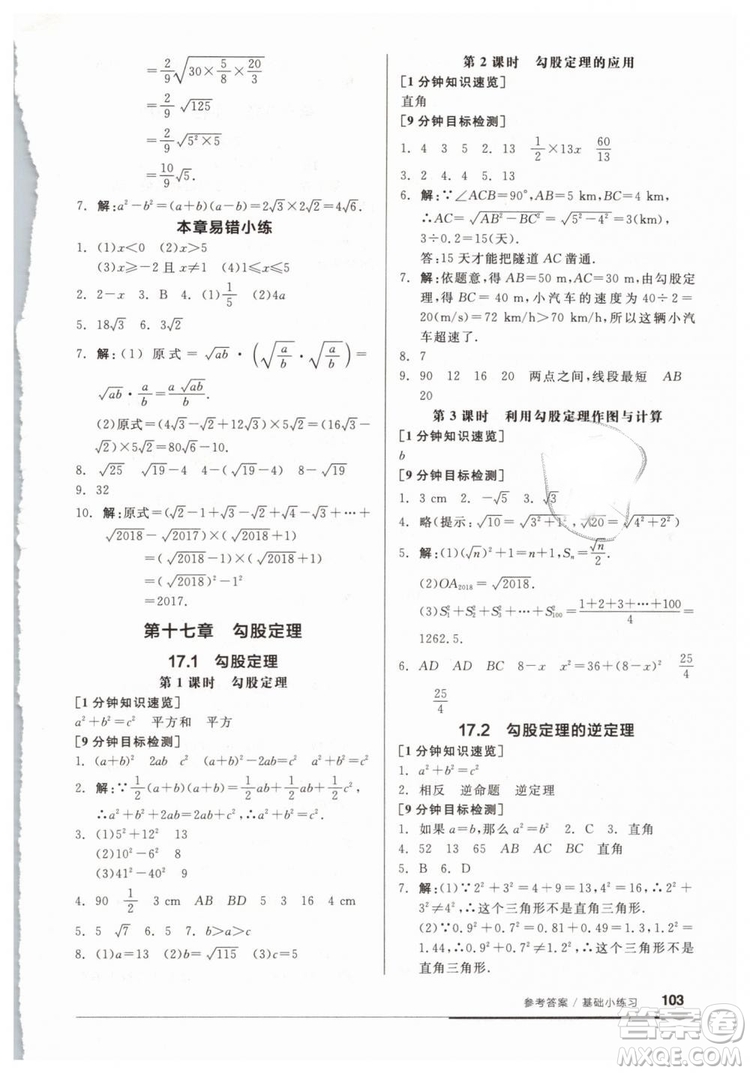 =2/9√(30×5/2×20/3)
=2/9√125
=2/9√(5²×5)
=10/9√5.
7. 解:a²-b²=(a+b)(a-b)=2√3×2√2=4√6.
本章易错小练
1. (1)x<0 (2)x>5
(3)x≥-2且x≠1
2. 2-x 3. D 4. (1)1/5 (2)4a
5. 18√3 6. 3√2
7. 解:(1)原式=√ab·(√(a/b)·√(a/b))
=√ab·a/b=a√ab/b.
(2)原式=(4√3-√2+12√3)×5√2=(16√3-
√2)×5√2=80√6-10.
8. √25 √19-4
9. 32
10. 解:原式=(√2-1+√3-√2+√4-√3+…+
√2018-√2017)×(√2018+1)
=(√2018-1)×(√2018+1)
=(√2018)²-1²
=2017.
第十七章 勾股定理
17.1 勾股定理
第1课时 勾股定理
[1分钟知识速览]
a²+b²=c² 平方和 平方
[9分钟目标检测]
1. (a+b)² 2ab c² (a+b)²-2ab=c² a²+b²=c²
2. 解:∵1/2(a+b)(a+b)=1/2ab+1/2ab+1/2c²,
∴a²+b²+2ab=2ab+c²,∴a²+b²=c².
3. (1)5²+12² 13
(2)10²-6² 8
(3)41²-40² 9
4. 90 1/2 3 cm AB BD 5 3 16 4
5. 5 √7 6. 5 7. b>a>c
8. (1)a=13 (2)b=√115 (3)c=5
第2课时 勾股定理的应用
[1分钟知识速览]
直角
[9分钟目标检测]
1. 4 3 5 2. 13 1/2×13x 60/13
3. 2 4. 4 5. 13
6. 解:∵∠ACB=90°,AB=5 km,BC=4 km,
∴AC=√(AB²-BC²)=√(5²-4²)=3(km),
3÷0.2=15(天).
答:15天才能把隧道AC凿通.
7. 解:依题意,得AB=50 m,AC=30 m,由勾股定
理,得BC=40 m,小汽车的速度为40÷2=
20(m/s)=72 km/h>70 km/h.所以这辆小汽
车超速了.
8. 7
9. 90 12 16 两点之间,线段最短 AB
20
第3课时 利用勾股定理作图与计算
[1分钟知识速览]
b
[9分钟目标检测]
1. 3 cm 2. -√5 3. √3
4. 略(提示:√10=√(3²+1²),√20=√(4²+2²))
5. 解:(1)(√n)²+1=n+1,Sₙ=√n/2.
(2)OA₂₀₁₈=√2018.
(3)S₁²+S₂²+S₃²+…+S₁₀₀²=(1+2+3+…+100)/4=
1262.5.
6. AD AD BD 8-x x²=36+(8-x)² 25/4
25/4
17.2 勾股定理的逆定理
[1分钟知识速览]
1. a²+b²=c²
2. 相反 逆命题 逆定理
[9分钟目标检测]
1. 如果a=b,那么a²=b² 2. C 3. 直角
4. 52 13 65 AC 直角
5. B 6. D
7. 解:(1)∵2²+3²=4+9=13,4²=16,∴2²+
3²≠4²,∴这个三角形不是直角三角形.
(2)∵0.9²+1²=0.81+0.9=1.3,1.2²=
1.44,∴0.9²+1²≠1.2²,∴这个三角形不是
直角三角形.
参考答案/基础小练习 103
答案圈
MXQE.COM